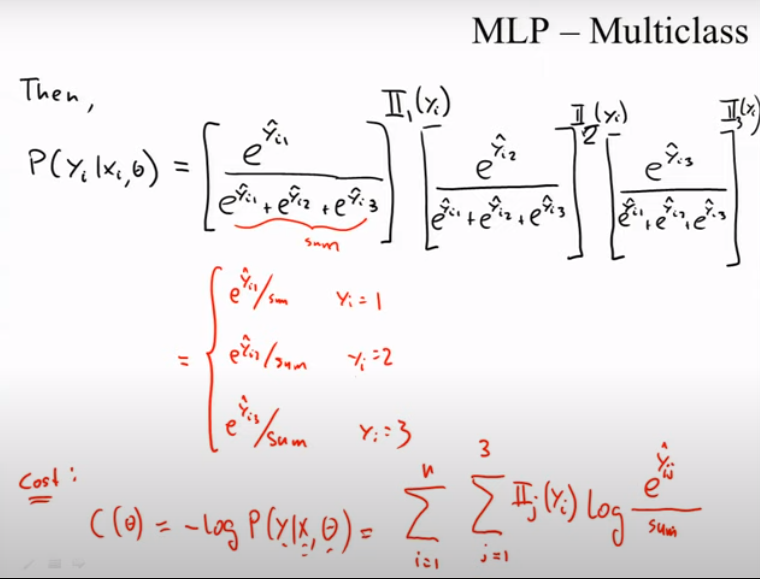 MLP – Multiclass
Then,
P(y_i|x_i,θ) = [e^{ŷ_{i1}} / (e^{ŷ_{i1}} + e^{ŷ_{i2}} + e^{ŷ_{i3}})]^{𝕀_1(y_i)} [e^{ŷ_{i2}} / (e^{ŷ_{i1}} + e^{ŷ_{i2}} + e^{ŷ_{i3}})]^{𝕀_2(y_i)} [e^{ŷ_{i3}} / (e^{ŷ_{i1}} + e^{ŷ_{i2}} + e^{ŷ_{i3}})]^{𝕀_3(y_i)}
sum
= { e^{ŷ_{i1}}/sum y_i = 1
e^{ŷ_{i2}}/sum y_i = 2
e^{ŷ_{i3}}/sum y_i = 3
Cost:
C(θ) = -log P(y|x,θ) = ∑_{i=1}^{n} ∑_{j=1}^{3} 𝕀_j(y_i) log e^{ŷ_{ij}}/sum